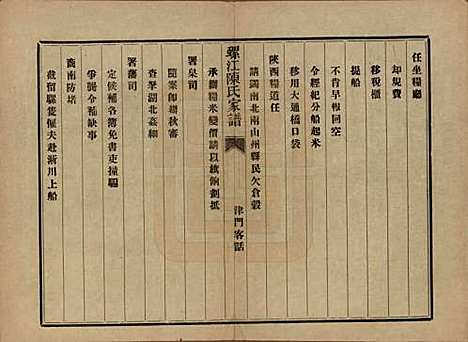 任坐糧廳
却規費
移稅櫃
提船
不肯早報回空
令經紀分船起米
移用大通橋口袋
陝西糧道任
請蠲南北南山州縣民欠倉穀
螺江陳氏家譜
津門客話
承糶糧米變價請以旗餉劃抵
署臬司
隨案卽場秋審
查拏湖北姦細
署藩司
定候補各簿免書吏撞騙
爭題令缺事
商南防堵
截留騾隻僱夫赴淅川上船